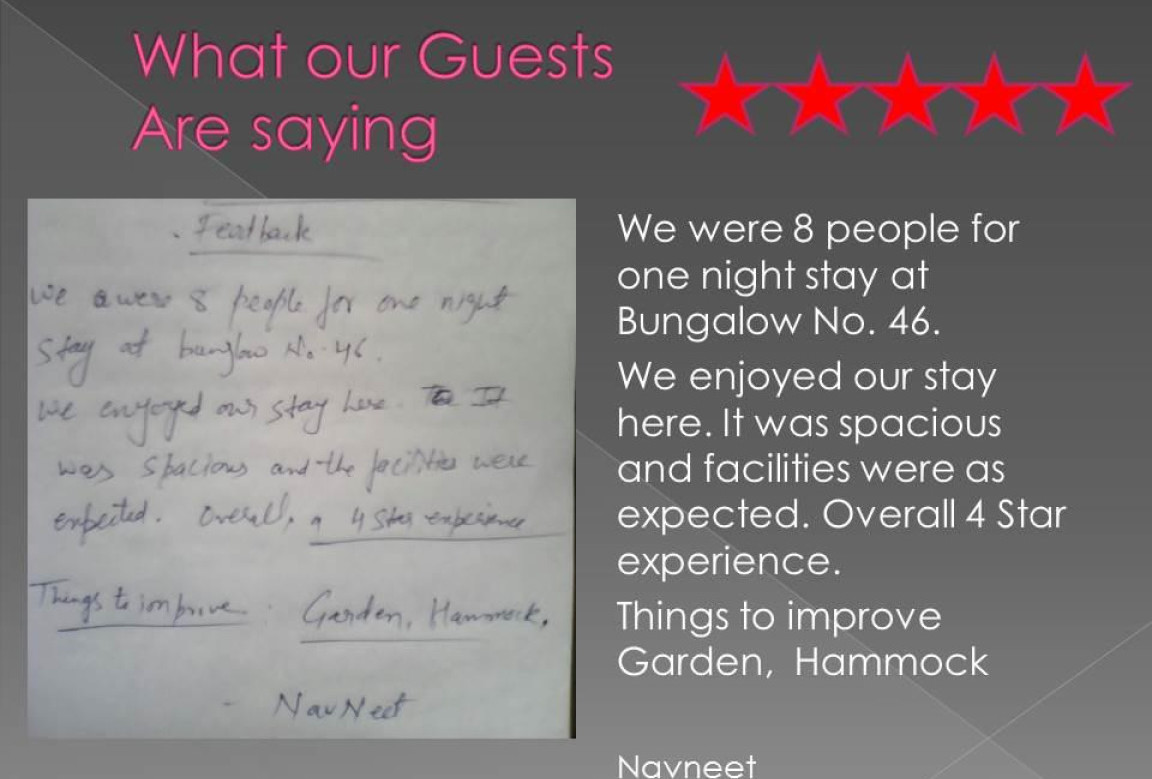 What our Guests
Are saying
Feedback
We were 8 people for one night
stay at bunglow No. 46.
We enjoyed our stay here. It
was spacious and the facilities were
expected. Overall, a 4 Star experience
Things to improve. Garden, Hammock.
- NavNeet
We were 8 people for
one night stay at
Bungalow No. 46.
We enjoyed our stay
here. It was spacious
and facilities were as
expected. Overall 4 Star
experience.
Things to improve
Garden, Hammock
Navneet